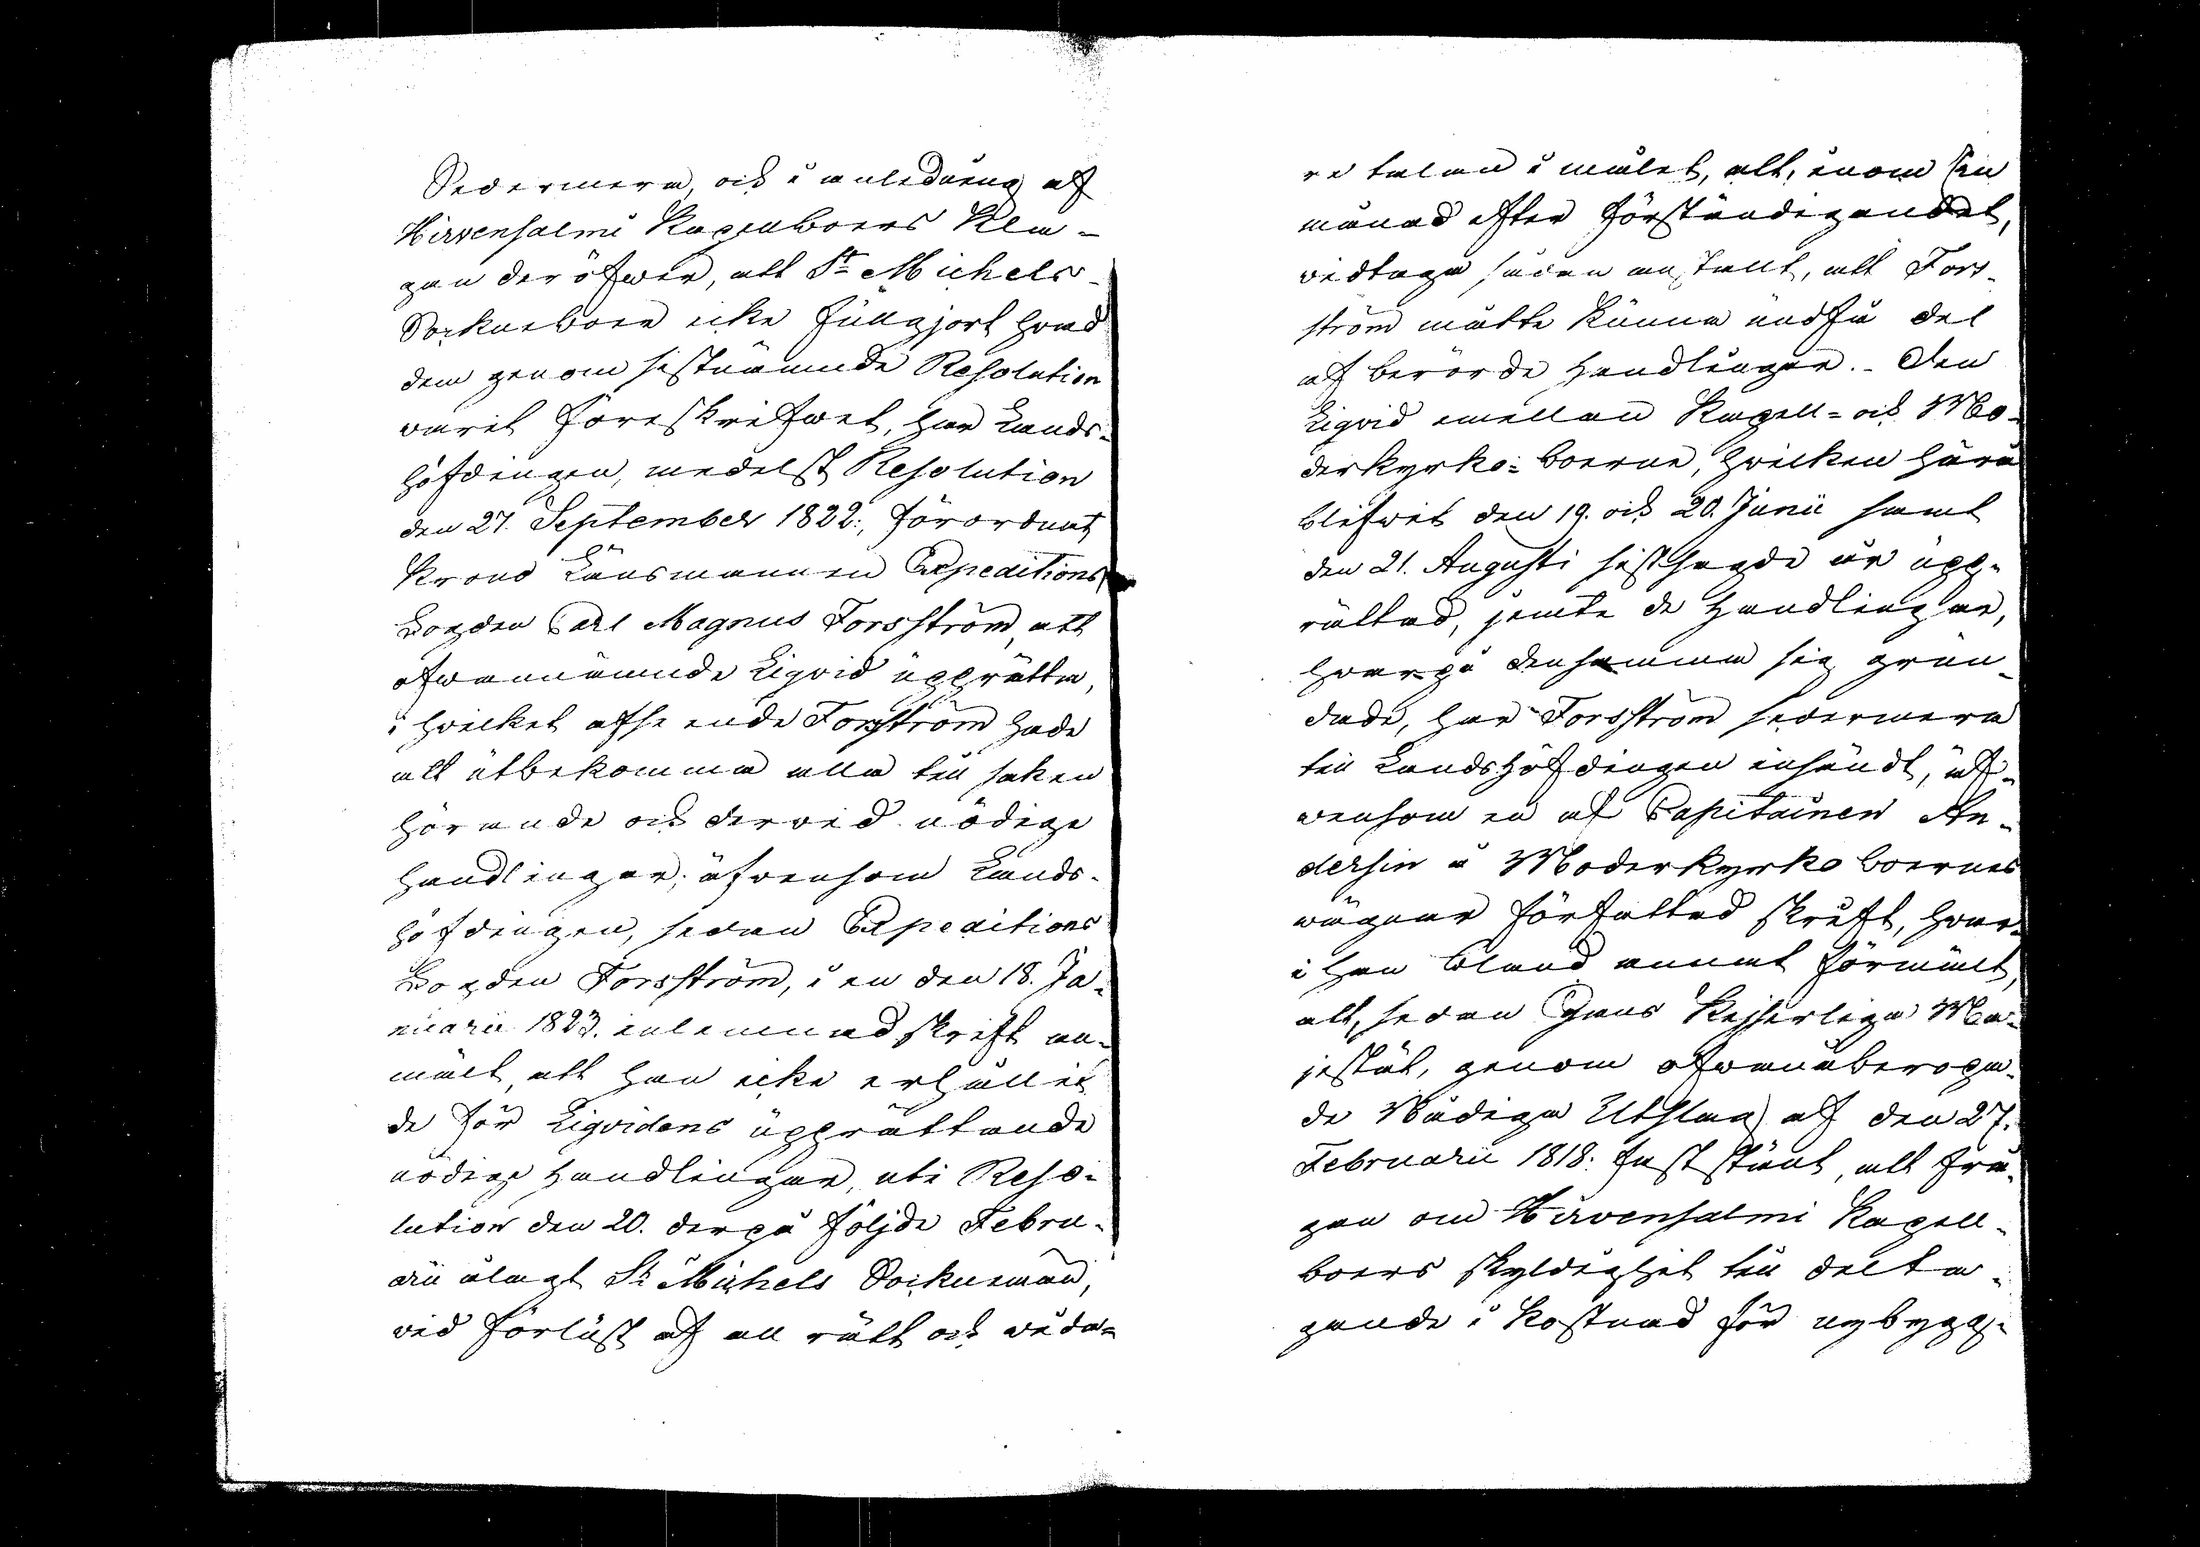 Sedermera, och i anledning af
Hirvensalmi Kapellboers kla-
gan deröfwer, att S:t Michels
Sockneboer icke fullgjort hvad
dem genom sistnämnde Resolution
varit föreskrifwet, har Lands-
höfdingen, medelst Resolution
den 27. September 1822:, förordnat
Krono Länsmannen Expeditions
Fogden Carl Magnus Forsström, att
ofwannämnde Liqvid upprätta,
i hvilket afseende Forsström hade
att utbekomma alla till saken
hörande och dervid nödige
handlingar; äfvensom Lands-
höfdingen, sedan Expeditions
Fogden Forsström, i en den 18. Ja-
nuarii 1823. inlemnad skrift an-
mält, att han icke erhållit
de för Liqvidens upprättande
nödige handlingar, uti Reso-
lution den 20. derpå följde Febru-
arii ålagt S:t Michels Sockneman,
vid förlust af all rätt och vida-
re talan i målet, att, inom en
månad efter förständigandet,
vidtaga sådan anstalt, att Fors-
ström måtte kunna undfå del
af berörde handlingar. - Den
Liqvid emellan Kapell- och Mo-
derkyrko-boerne, hvilken härå
blifvit den 19. och 20. Junii samt
den 21. Augusti sistsagde år upp-
rättad, jemte de handlingar,
hvarpå densamma sig grun-
dade, har Forsström sedermera
till Landshöfdingen insändt, äf-
vensom en af Capitainen An-
dersin å Moderkyrko boernes
vägnar författad skrift, hvar-
i han bland annat förmält,
att, sedan Hans Kejserliga Ma-
jestät, genom ofvanåberopa-
de Nådiga Utslag af den 27.
Februarii 1818: fastställt, att frå-
gan om Hirvensalmi Kapell-
boers skyldighet till delta-
gande i kostnad för nybygg-